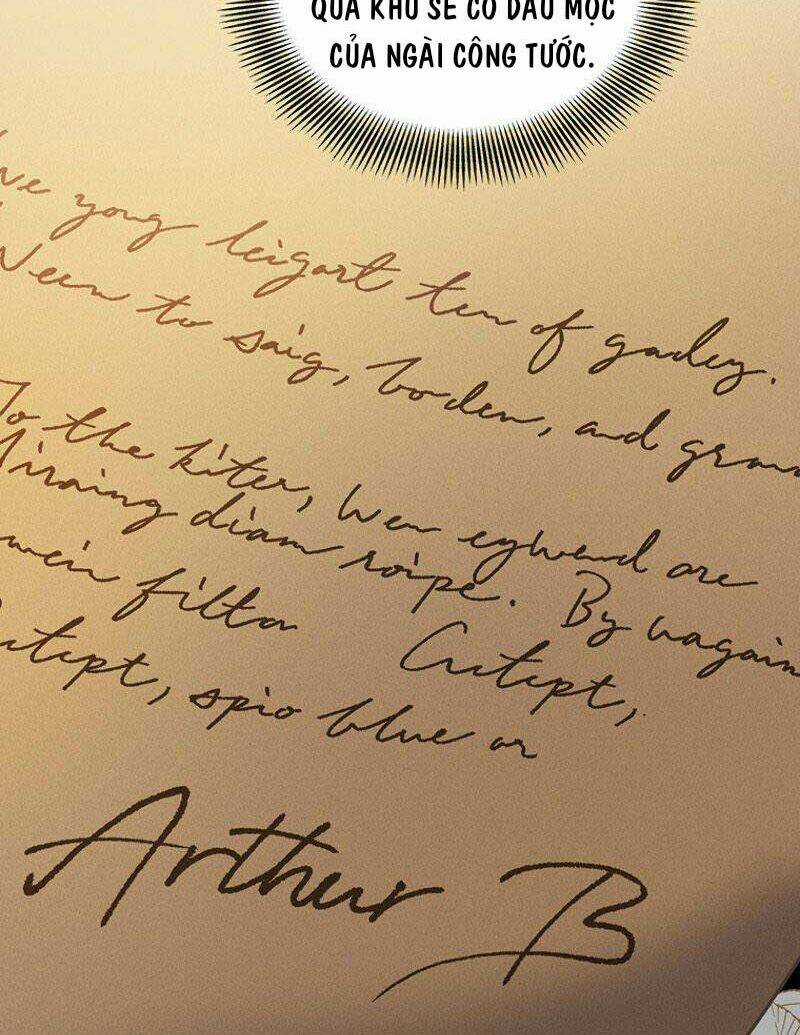 QUÁ KHỨ SẼ CÓ DẤU MỘC
CỦA NGÀI CÔNG TƯỚC.
ve yong leigart ten of gadey.
Ween to saig, boden, and gran
To the kiter, Wen egwend are
Miraing diam roipe. By nagain
wein filton Cutept,
utept, spio blue or
Arthur B